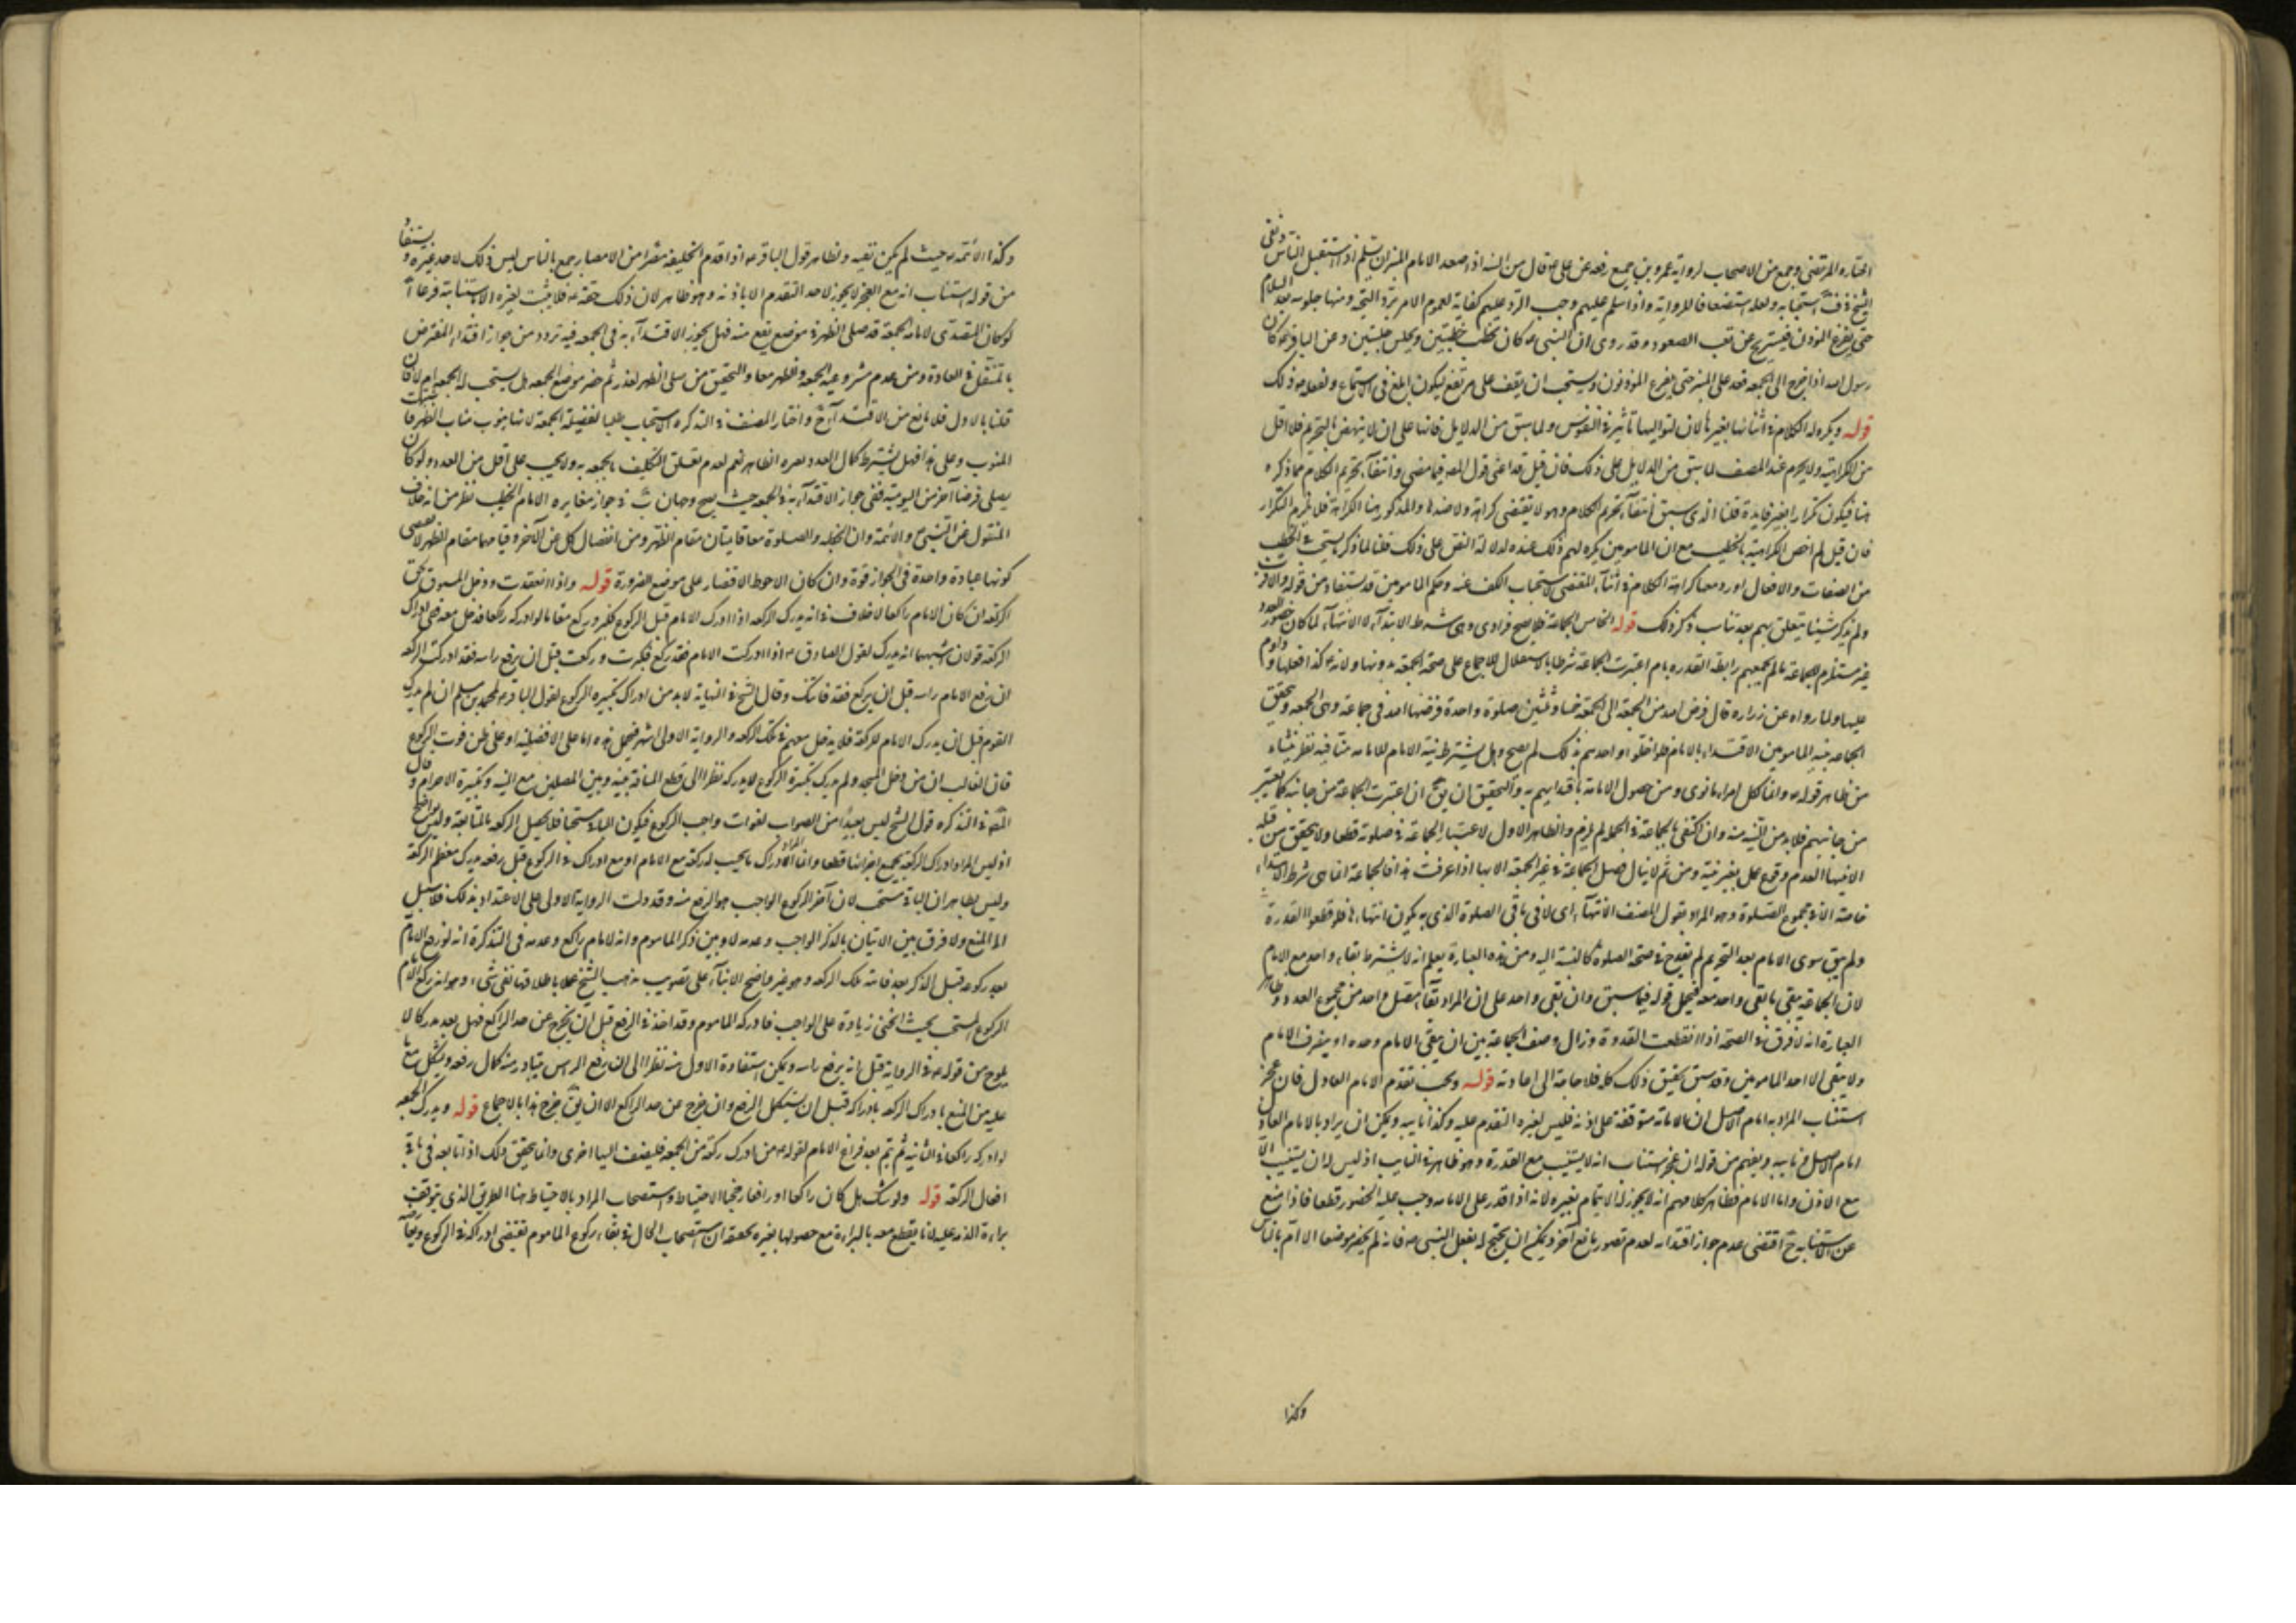 اختاره المرتضى وجمع من الاصحاب لرواية عمرو بن جميع رفعه عن علي ع قال من السنة اذا صعد الامام المنبر ان يسلم اذا استقبل الناس ونفى
الشيخ في ف استحبابه ولعله استضعافا للرواية واذا سلم عليهم وجب الرد عليهم كفاية لعموم الامر برد التحية ومنها جلوسه بعد السلام
حتى يفرغ المؤذن فيستريح عن تعب الصعود وقد روى ان النبي ص كان يخطب خطبتين ويجلس جلستين وعن الباقر ع كان
رسول الله اذا خرج الى الجمعة قعد على المنبر حتى يفرغ المؤذنون ويستحب ان يقف على مرتفع ليكون ابلغ في الاستماع ولفعله ص ذلك
قوله ويكره له الكلام في اثنائها بغيرها لان لتواليها تأثيرا في النفوس ولما سبق من الدلايل فانها على ان لا ينهض بالتحريم فلا اقل
من الكراهية ولا يحرم عند المصنف لما سبق من الدلايل على ذلك فان قيل قد اغنى قول المص فيما مضى وانتفاء تحريم الكلام عما ذكره
هنا فيكون تكرارا بغير فايدة قلنا الذي سبق انتفاء تحريم الكلام وهو لا يقتضي كراهة ولا ضدها والمذكور هنا الكراهة فلا يلزم التكرار
فان قيل لم اخص الكراهية بالخطيب مع ان المامومين يكره لهم ذلك عنده لدلالة النص على ذلك قلنا لما ذكر ما يستحب في الخطيب
من الصفات والافعال اورد معها كراهة الكلام في اثناء المقتضي لاستحباب الكف عنه وحكم المامومين قد يستفاد من قوله
ولم يذكر شيئا يتعلق بهم بعد تناسب ذكر ذلك قوله الخامس الجماعة فلا يصح فرادى وهي شرط الابتداء لا الانتهاء لما كان حضور العدد
غير مستلزم للجماعة ما لم يجمعهم رابطة القدوة بامام اعتبرت الجماعة شرطا بالاستقلال للاجماع على صحة الجمعة بدونها ولانه ص كذا فعلها وداوم
عليها ولما رواه عن زرارة قال فرض الله من الجمعة الى الجمعة خمسا وثلثين صلوة واحدة فرضها الله في جماعة وهي الجمعة ويتحقق
الجماعة بنية المامومين الاقتداء بالامام فلو اخلوا او احدهم بذلك لم يصح وهل يشترط نية الامام للامامة هنا فيه نظر ينشاء
من ظاهر قوله ص وانما لكل امرء ما نوى ومن حصول الامامة باقتدائهم به والتحقيق ان يق ان اعتبرت الجماعة من جانبه كما يعتبر
من جانبهم فلا بد من النية منه وان اكتفى بالجماعة في الجملة لم يلزم والظاهر الاول لاعتبار الجماعة في صلوته قطعا ولا يتحقق من قبله
الا بنيتها لعدم وقوع عمل بغير نية ومن ثم لا ينال فضل الجماعة في غير الجمعة الا بها اذا عرفت هذا فالجماعة انما هي شرط الابتداء
خاصة لا في مجموع الصلوة وهو المراد بقول المصنف الانتهاء اي لا في باقي الصلوة الذي به يكون انتهاءها فلو قطعوا القدوة
ولم يبق سوى الامام بعد التحريم لم يقدح في صحة الصلوة كالنسبة اليه ومن هذه العبارة يعلم انه لا يشترط بقاء واحد مع الامام
لان الجماعة يبقى ما بقي واحد معه فيحمل قوله فيما سبق وان بقي واحد على ان المراد بقاء مقتدي واحد من مجموع العدد وظاهر
العبارة انه لا فرق في الصحة اذا انقطعت القدوة وزال وصف الجماعة بين ان يبقى الامام وحده او ينصرف الامام
ولا يبقى الا احد المامومين وقد سبق تحقيق ذلك كله فلا حاجة الى اعادته قوله ويجب تقدم الامام العادل فان عجز
استناب المراد به امام الاصل ان الامامة متوقفة على اذنه فليس لغيره التقدم عليه وكذا نايبه ويمكن ان يراد بالامام العادل
امام الاصل مع نايبه ويفهم من قوله ان عجز استناب انه لا يستنيب مع القدرة وهو ظاهر في النايب اذ ليس له ان يستنيب الا
مع الاذن واما الامام فظاهر كلامهم انه لا يجوز له الايتمام بغيره لانه اذا قدر على الامامة وجب عليه الحضور قطعا فاذا منع
عن الاستنابة ح اقتضى عدم جواز اقتدائه لعدم تصور مانع آخر ويمكن ان يحتج له بفعل النبي ص فانه لم يحضر موضعا الا ام بالناس
وكذا
وكذا الائمة ع حيث لم يكن تقية وظاهر قول الباقر ع اذا قدم الخليفة مصرا من الامصار جمع بالناس ليس ذلك لاحد غيره ويستفاد
من قوله استناب انه مع العجز لا يجوز لاحد التقدم الا باذنه وهو ظاهر لان ذلك حقه ع فلا يثبت لغيره الا باستنابة فرعا
لو كان المقتدي لامامه الجمعة قد صلى الظهر في موضع يقع منه فهل يجوز الاقتداء به في الجمعة فيه تردد من جواز اقتداء المفترض
بالمتنفل في المعادة ومن عدم مشروعية الجمعة والظهر معا والتحقيق من صلى الظهر لعذر ثم حضر موضع الجمعة هل يستحب له الجمعة ام لا فان
قلنا بالاول فلا مانع من الاقتداء ح واختار المصنف في التذكره الاستحباب طلبا لفضيلة الجمعة لانها ينوب مناب الظهر فاشبهت
المنوب وعلى هذا فهل يشترط كمال العدد بغيره الظاهر نعم لعدم تعلق التكليف بالجمعة به ولا يجب على اقل من العدد ولو كان
يصلى فرضا آخر من اليومية ففي جواز الاقتداء به في الجمعة حيث يصح وجهان ب في جواز مغايرة الامام الخطيب نظر من انه خلاف
المنقول عن النبي ص والائمة وان الخطبة والصلوة معا قايمتان مقام الظهر ومن انفصال كل عن الآخر وقيامهما مقام الظهر لا يقتضي
كونها عبادة واحدة ففي الجواز قوة وان كان الاحوط الاقتصار على موضع الضرورة قوله واذا انعقدت ودخل المسبوق لحق
الركعة ان كان الامام راكعا لا خلاف في انه يدرك الركعة اذا ادرك الامام قبل الركوع فكبر وركع معه اما لو ادركه راكعا فدخل معه ففي ادراك
الركعة قولان اشبههما انه يدرك لقول الصادق ع اذا ادركت الامام فقد ركع فكبرت وركعت قبل ان يرفع راسه فقد ادركت الركعة
ان رفع الامام راسه قبل ان يركع فقد فاتتك وقال الشيخ في النهاية لا بد من ادراك تكبيرة الركوع لقول الباقر ع لمحمد بن مسلم ان لم تدرك
القوم قبل ان يدرك الامام للركعة فلا يدخل معهم في تلك الركعة والرواية الاولى اشهر فيحمل هذه اما على الافضلية او على ظن فوت الركوع
فان الغالب ان من دخل المسجد ولم يدرك تكبيرة الركوع لا يدركه نظرا الى قطع المسافة بينه وبين المصلين مع النية وتكبيرة الاحرام وقال
المص في التذكره قول الشيخ ليس بعيدا من الصواب لفوات واجب الركوع فيكون الباقي مستحبا فلا يحصل الركعة بالمتابعة وليس بواضح
اذ ليس المراد ادراك الركعة بجميع اجزائها قطعا وانما المراد ادراك ما يحسب له ركعة مع الامام او مع ادراكه في الركوع قبل رفعه يدرك معظم الركعة
وليس بظاهر ان الباقي مستحب لان آخر الركوع الواجب هو الرفع منه وقد دلت الرواية الاولى على الاعتداد بذلك فلا سبيل
الى المنع ولا فرق بين الاتيان بالذكر الواجب وعدمه ولا بين ذكر الماموم وانه لامام راكع وعدمه في التذكرة انه لو رفع الامام
بعد ركوعه قبل الذكر بعد فاتته تلك الركعة وهو غير واضح الابناء على تصويب مذهب الشيخ عملا باطلاقها نفي شيء وهو انه لو ركع الامام
الركوع المستحب بحيث انحنى زيادة على الواجب فادركه الماموم وقد اخذ في الرفع قبل ان يخرج عن حد الراكع فهل يعد مدركا لا
يلوح من قوله ع في الرواية قبل انه يرفع راسه ويمكن استفادة الاول منه نظرا الى ان رفع الراس يتبادر منه كمال رفعه ويشكل معا
عليه من المنع بادراك الركعة بادراكه قبل ان يستكمل الرفع وان خرج عن حد الراكع الا ان يق خرج هذا بالاجماع قوله ويدرك الجمعة
لو ادركه راكعا في الثانية ثم يتم بعد فراغ الامام لقوله ص من ادرك ركعة من الجمعة فليضف اليها اخرى وانما يتحقق ذلك اذا تابعه في باقي
افعال الركعة قوله ولو شك هل كان راكعا او رافعا رجحنا الاحتياط واستصحاب المراد بالاحتياط هنا الطريق الذي يتوقف
براءة الذمة عليه لانا يقطع معه بالبراءة مع حصولها بغيره تحقيقه ان استصحاب الحال في بقاء ركوع الماموم يقتضي ادراكه في الركوع